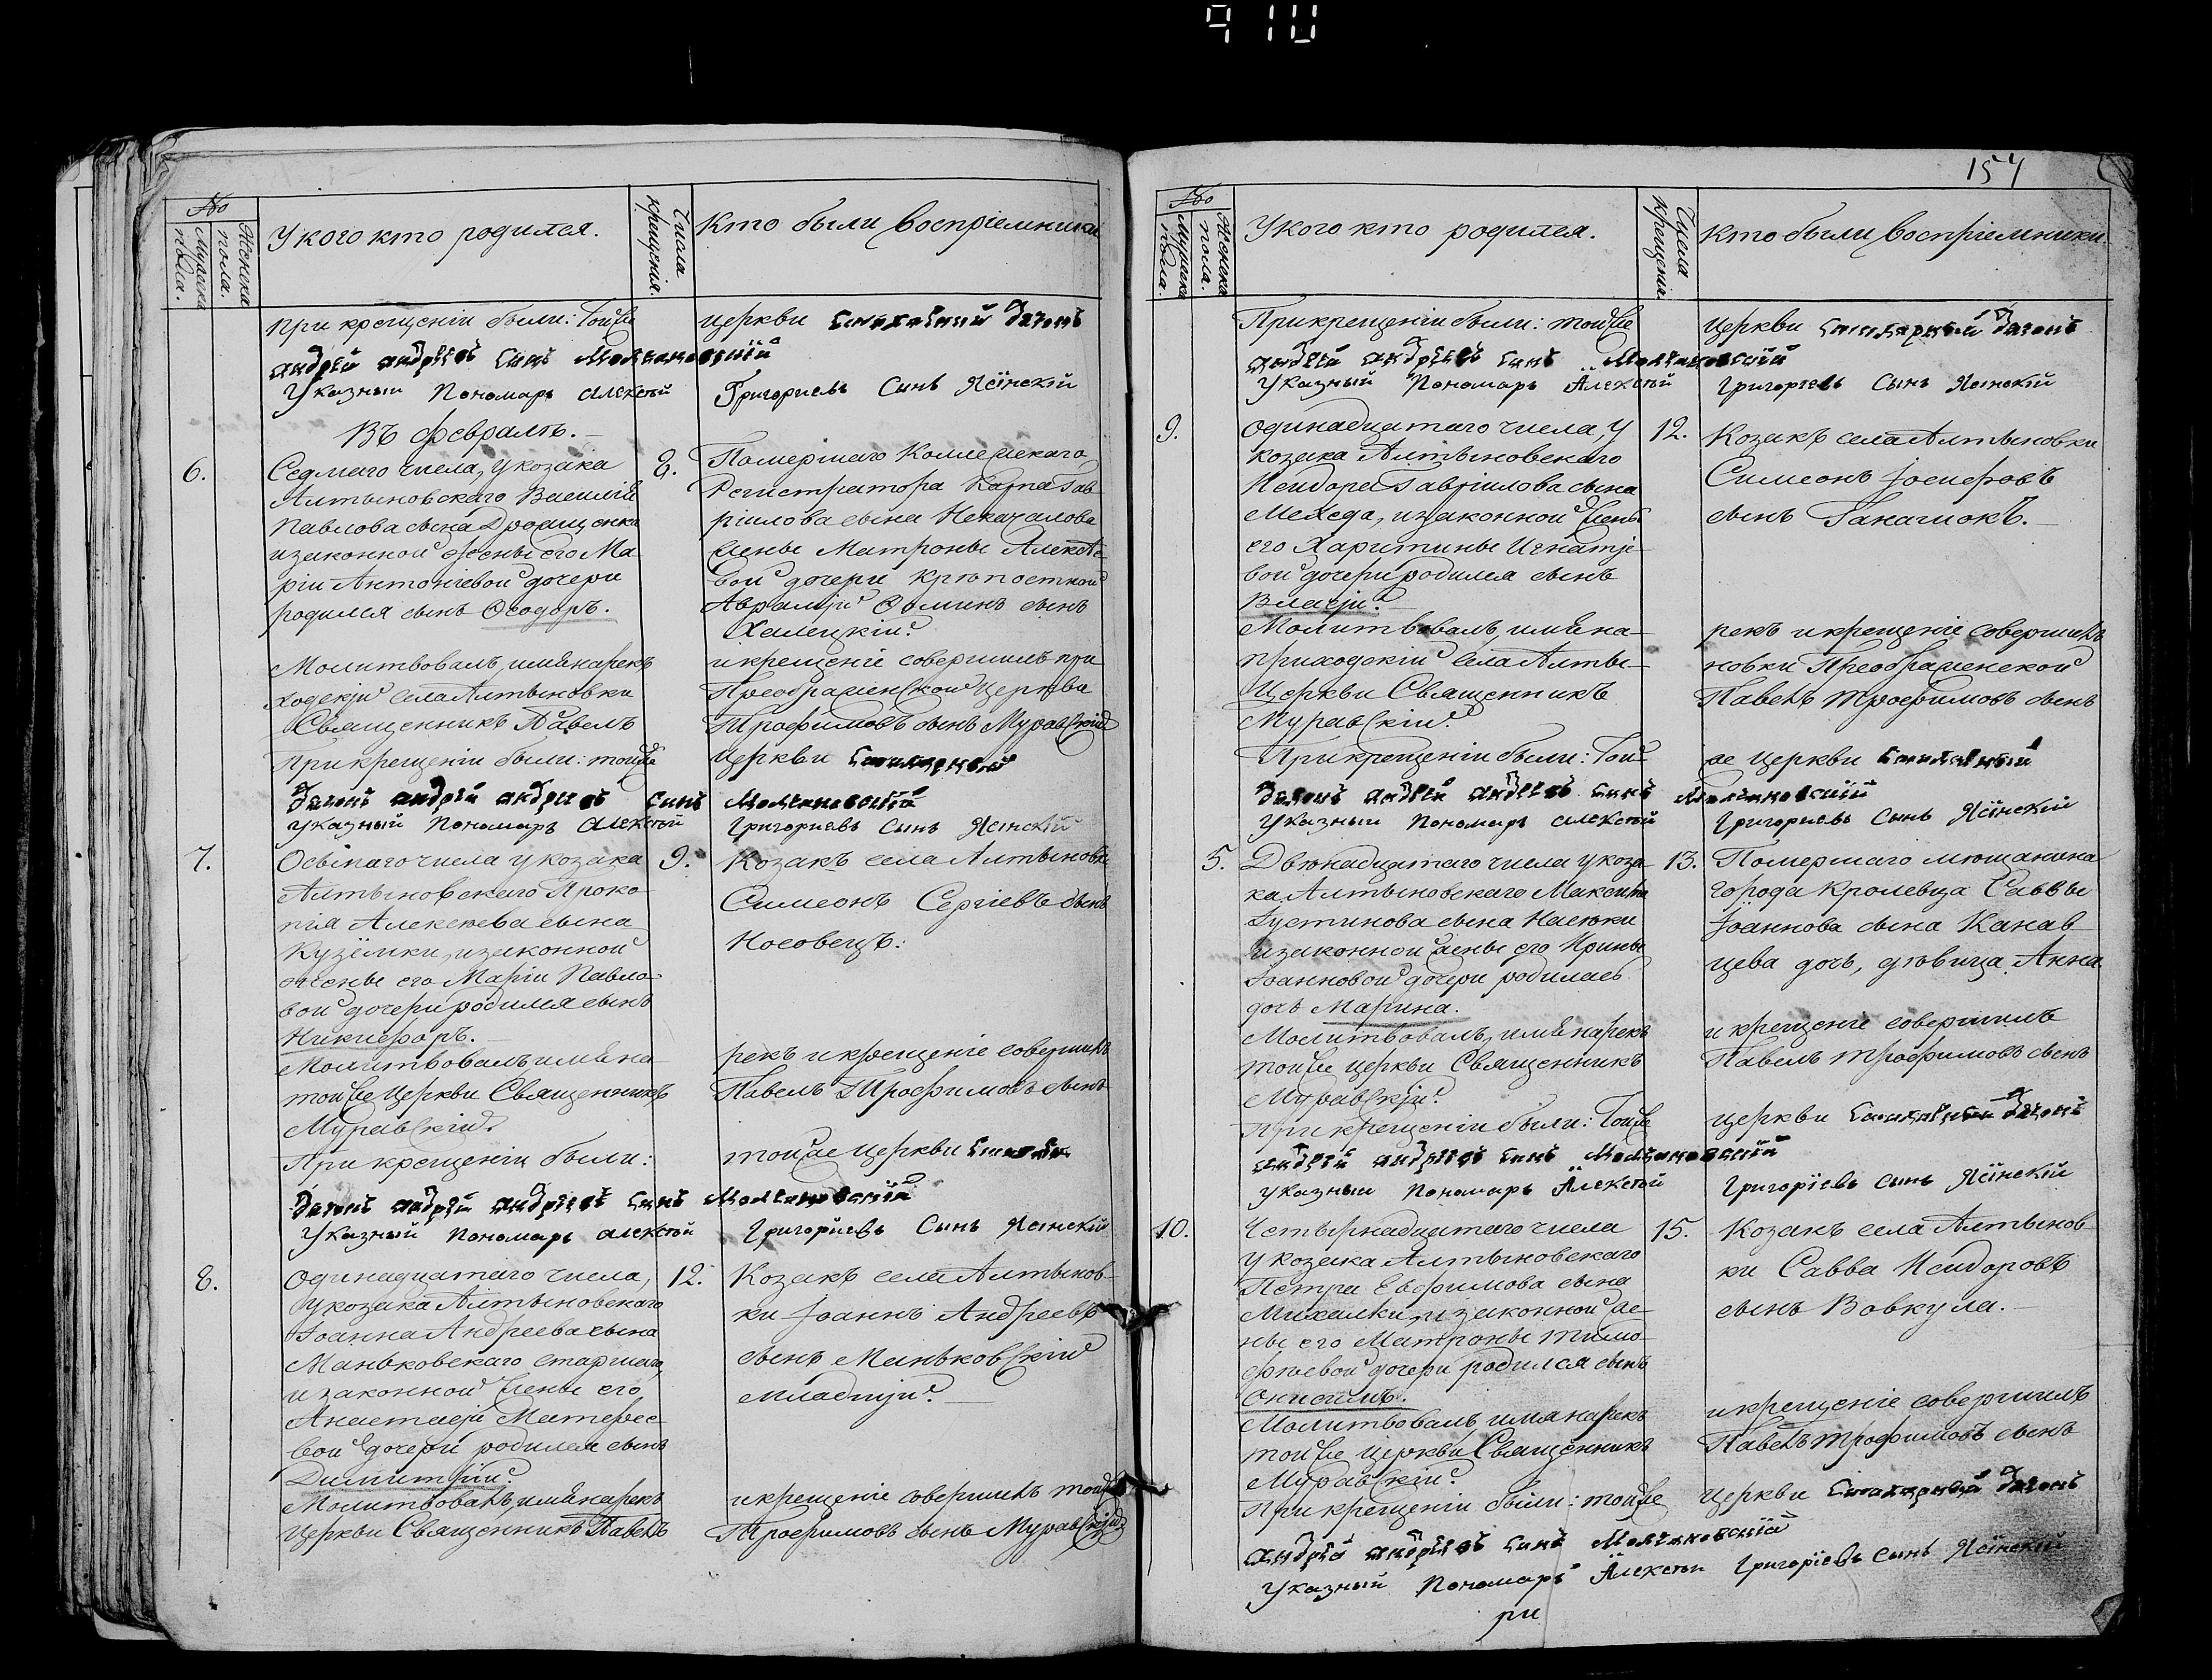 910
№
Мужеска пола.
Женска пола.
У кого кто родился.
Числа крещенія.
Кто были Воспріемники
при крещеніи были: Тойже
церкви стихарный дячокъ
андрей андреевъ синъ Молчановскій
Указный Пономарь Алексѣй
Григориевъ Сынъ Ясінскій
Въ Февралѣ.
6.
Седмаго числа, у козака
Алтыновскаго Василія
Павлова сына Дрофщенка
и законной жены его Ма-
ріи Антоніевой дочери
родился сынъ Ѳеодоръ.
8.
Помершаго Коллежскаго
Регистратора Карпа Гав-
ріилова сына Некачалова
жены Матроны Алексѣе-
вой дочери крѣпостной
Аврамій Ѳоминъ сынъ
Халецкій.
Молитвовалъ, имя нарекъ
и крещеніе совершилъ при
ходскій села Алтыновки
Преображенской Церкви
Священникъ Павелъ
Трофимовъ сынъ Муравскій
При крещеніи были: тойже
церкви стихарный
дячокъ андрей андреевъ синъ Молчановскій
указный Пономарь Алексѣй
Григориевъ Сынъ Ясінскій
7.
Осьмаго числа у козака
Алтыновскаго Проко-
пія Алексѣева сына
Кузёмки, и законной
жены его Маріи Павло-
вой дочери родился сынъ
Никифоръ.
9.
Козакъ села Алтыновки
Симеонъ Сергіевъ сынъ
Носовецъ.
Молитвовалъ имя на-
рекъ и крещеніе совершилъ
тойже Церкви Священникъ
Павелъ Трофимовъ сынъ
Муравскій.
При крещеніи были:
тойже церкви
дячокъ андрей андреевъ синъ Молчановскій
Указный Пономарь Алексѣй
Григоріевъ Сынъ Ясінскій
8.
Одинадцатаго числа,
у козака Алтыновскаго
Іоанна Андреева сына
Маньковскаго старшаго,
и законной жены его
Анастасіи Матфее-
вой дочери родился сынъ
Димитрій.
12.
Козакъ села Алтынов-
ки Іоаннъ Андреевъ
сынъ Маньковскій
младшій.
Молитвовалъ, имя нарекъ
и крещеніе совершилъ тойже
Церкви Священникъ Павелъ
Трофимовъ сынъ Муравскій
154
№
Мужеска пола.
Женска пола.
У кого кто родился.
Числа крещенія.
Кто были Воспріемники
При крещеніи были: тойже
церкви стихарный дячокъ
андрей андреевъ синъ Молчановскій
Указный Пономарь Алексѣй
Григоріевъ Сынъ Ясінскій
9.
Одинадцатаго числа, у
козака Алтыновскаго
Исидора Гавріилова сына
Мехеда, и законной жены
его Харитины Игнатіе-
вой дочери родился сынъ
Власій.
12.
Козакъ села Алтыновки
Симеонъ Іосифовъ
сынъ Ганатюкъ.
Молитвовалъ, имя на-
рекъ и крещеніе совершилъ
приходскій села Алты-
новки Преображенской
Церкви Священникъ
Павелъ Трофимовъ сынъ
Муравскій.
При крещеніи были: Той-
же церкви стихарный
дячокъ андрей андреевъ синъ Молчановскій
Указный Пономарь Алексѣй
Григориевъ Сынъ Ясінскій
5.
Двѣнадцатаго числа у коза-
ка Алтыновскаго Максима
Іустинова сына Насѣки
и законной жены его Ирины
Іоанновой дочери родилась
дочь Марина.
13.
Помершаго мѣщанина
города Кролевца Саввы
Іоаннова сына Канав-
цева дочь, дѣвица Анна
Молитвовалъ, имя нарекъ
и крещеніе совершилъ
тойже церкви Священникъ
Павелъ Трофимовъ сынъ
Муравскій.
При крещеніи были: Тойже
церкви стихарный дячокъ
андрей андреевъ синъ Молчановскій
Указный Пономарь Алексѣй
Григоріевъ Сынъ Ясінскій
10.
Четырнадцатаго числа
у козака Алтыновскаго
Петра Евфимова сына
Михалки, и законной же-
ны его Матроны Тимо-
фѣевой дочери родился сынъ
Онисимъ.
15.
Козакъ села Алтынов-
ки Савва Исидоровъ
сынъ Вовкула.
Молитвовалъ, имя нарекъ
и крещеніе совершилъ
тойже церкви Священникъ
Павелъ Трофимовъ сынъ
Муравскій.
При крещеніи были: тойже
церкви Стихарный дячокъ
андрей андреевъ синъ Молчановскій
Указный Пономарь Алексѣй Григоріевъ Сынъ Ясінскій
ри